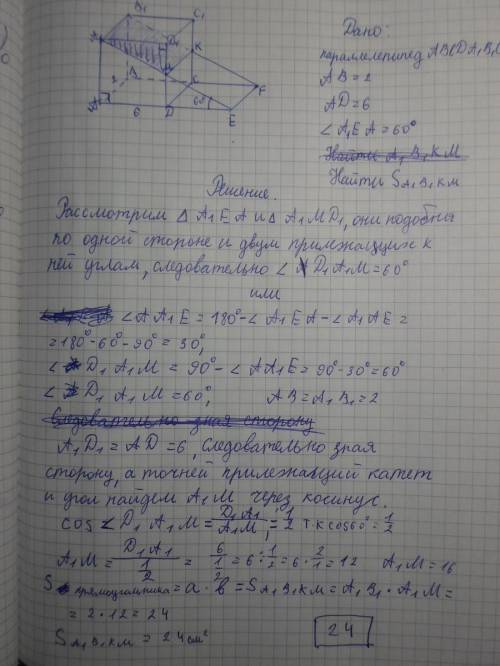 B₁
C₁
A₁
D₁
K
M
B
2
C
F
60°
A
6
D
E
Дано:
параллелепипед ABCDA₁B₁C
AB = 2
AD = 6
∠ A₁EA = 60°
Найти A₁B₁KM
Найти S A₁B₁KM
Решение.
Рассмотрим △ A₁EA и △ A₁MD₁, они подобны
по одной стороне и двум прилежащих к
ней углам, следовательно ∠ D₁A₁M = 60°
или
∠ AA₁E = 180° - ∠ A₁EA - ∠ A₁AE =
= 180° - 60° - 90° = 30°,
∠ D₁A₁M = 90° - ∠ AA₁E = 90° - 30° = 60°
∠ D₁A₁M = 60°, AB = A₁B₁ = 2
Следовательно зная сторону
A₁D₁ = AD = 6, следовательно зная
сторону, а точней прилежащий катет
и угол найдем A₁M через косинус.
cos ∠ D₁A₁M = D₁A₁/A₁M = 1/2 т.к cos60° = 1/2
A₁M = D₁A₁/(1/2) = 6/(1/2) = 6 : 1/2 = 6 · 2/1 = 12 A₁M = 16
S прямоугольника = a · b = S A₁B₁KM = A₁B₁ · A₁M =
= 2 · 12 = 24
S A₁B₁KM = 24 см²
24